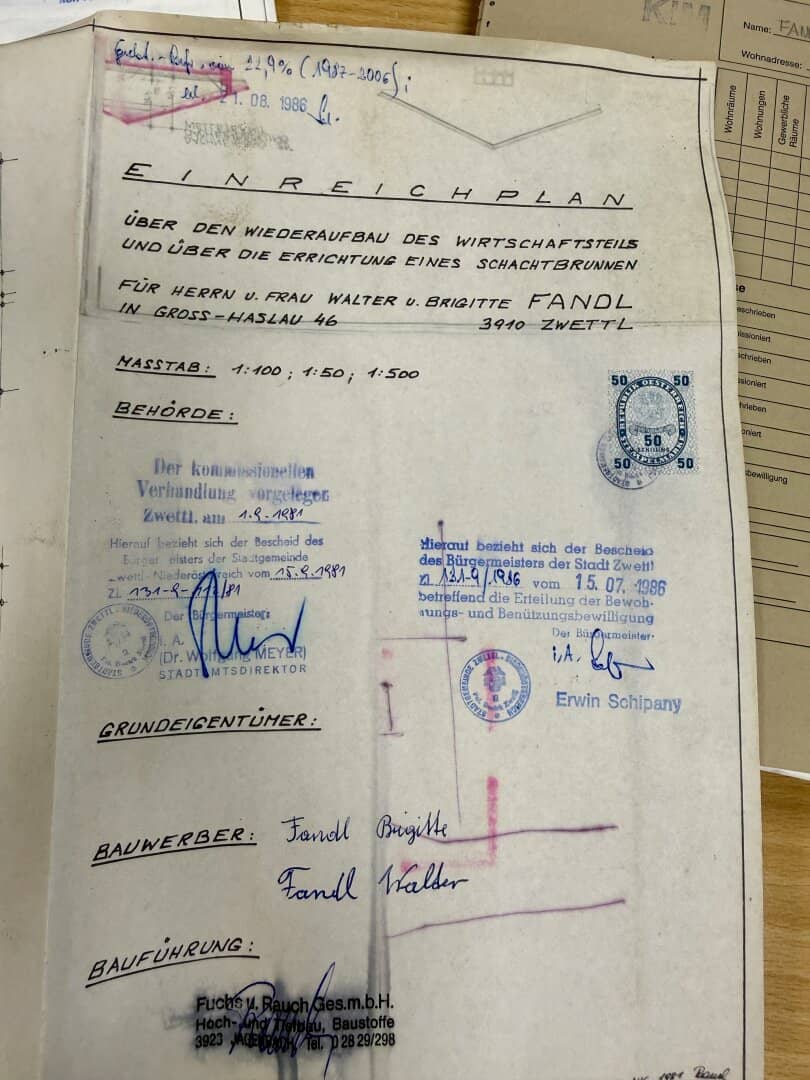 von 22,9% (1987-2006);
21. 08. 1986
EINREICHPLAN
ÜBER DEN WIEDERAUFBAU DES WIRTSCHAFTSTEILS
UND ÜBER DIE ERRICHTUNG EINES SCHACHTBRUNNEN
FÜR HERRN U. FRAU WALTER U. BRIGITTE FANDL
IN GROSS-HASLAU 46 3910 ZWETTL
MASSTAB: 1:100 ; 1:50 ; 1:500
BEHÖRDE:
50 50
REPUBLIK OESTERREICH
50
SCHILLING
50 50
Der kommissionellen
Verhandlung vorgelegen
Zwettl, am 1.9.1981
Hierauf bezieht sich der Bescheid des
Bürgermeisters der Stadtgemeinde
Zwettl-Niederösterreich vom 15.9.1981
Zl. 131-9-
Der Bürgermeister:
I. A.
(Dr. Wolfgang MEYER)
STADTAMTSDIREKTOR
Hierauf bezieht sich der Bescheid
des Bürgermeisters der Stadt Zwettl
Zl 131-9/1986 vom 15. 07. 1986
betreffend die Erteilung der Bewoh-
nungs- und Benützungsbewilligung
Der Bürgermeister:
i.A.
Erwin Schipany
GRUNDEIGENTÜMER:
BAUWERBER: Fandl Brigitte
Fandl Walter
BAUFÜHRUNG:
Fuchs u. Rauch Ges.m.b.H.
Hoch- und Tiefbau, Baustoffe
3923 Tel. 0 28 29/298
1981
KIM
Name: FAN
Wohnadresse:
Wohnräume
Wohnungen
Gewerbliche
Räume